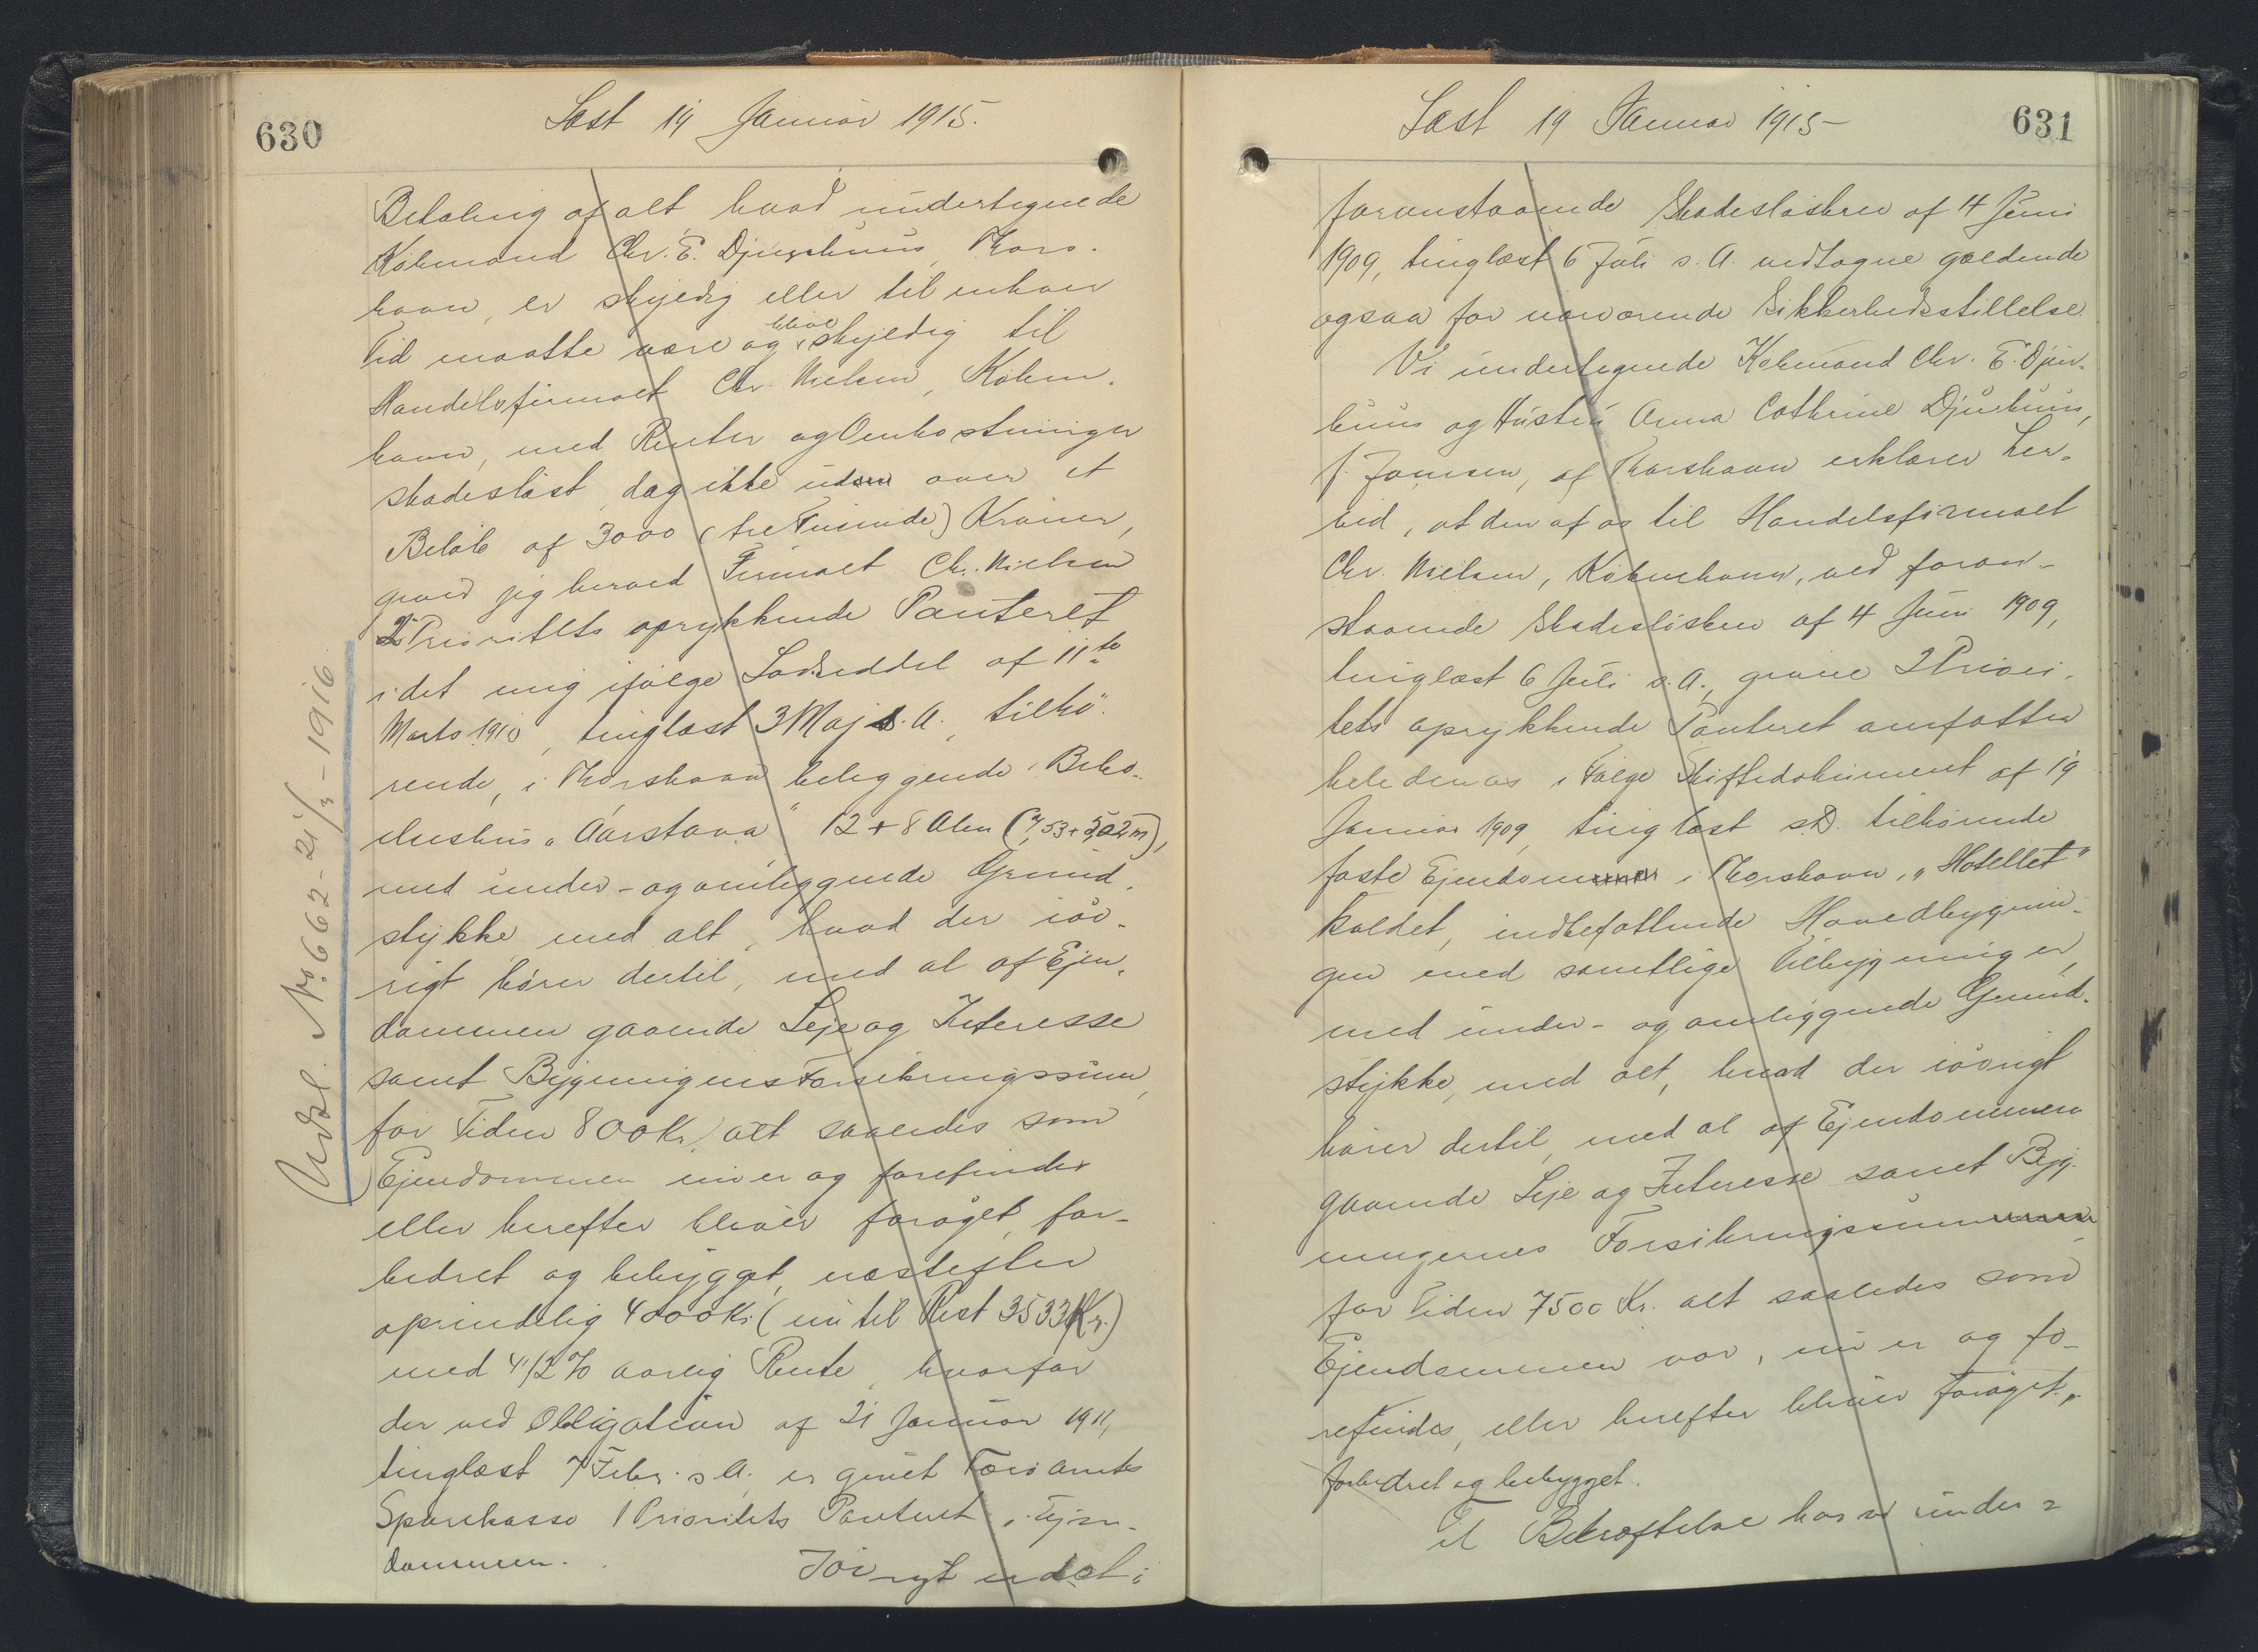 630
Læst 19 Januar 1915.
Betaling af alt hvad undertegnede
Købmand Chr. E. Djurhuus, Thors-
havn, er skyldig eller til enhver
Tid maatte være og blive skyldig til
Handelsfirmaet Chr. Nielsen, Köben-
havn, med Renter og Omkostninger
skadesløst, dog ikke uden over et
Beløb af 3000 (tre Tusinde) Kroner,
giver jeg herved Firmaet Chr. Nielsen
2 Prioritets oprykkende Panteret
i det mig ifølge Lodseddel af 11te
Marts 1910, tinglæst 3 Maj s. A., tilhø-
rende, i Thorshavn beliggende Bebo-
elseshus "Aarstova" 12 + 8 Alen (7,53 + 5,02 m),
med under- og omliggende Grund-
stykke med alt, hvad der iöv-
rigt hörer dertil, med al af Ejen-
dommen gaaende Leje og Interesse
samt Bygningens Forsikringssum,
for Tiden 800 Kr, alt saaledes som
Ejendommen nu er og forefindes
eller herefter bliver forøget, for-
bedret og bebygget, næstefter
oprindelig 4000 Kr. (nu til Rest 3533 Kr.)
med 4 1/2 % aarlig Rente, hvorfor
der ved Obligation af 21 Januar 1911,
tinglæst 7 Febr. s A. er givet Færø Amts
Sparekasse 1 Prioritets Panteret i Ejen-
dommen.
Iøvrigt er det i
Udsl. No. 662 - 21/3 - 1916.
Læst 19 Januar 1915
631
foranstaaende Skadesløsbrev af 4 Juni
1909, tinglæst 6 Juli s. A. vedtagne gældende
ogsaa for nærværende Sikkerhedsstillelse.
Vi undertegnede Købmand Chr. E. Djur-
huus og Hustru Anna Cathrine Djurhuus,
f. Joensen, af Thorshavn erklærer her-
ved, at den af os til Handelsfirmaet
Chr. Nielsen, København, ved foran-
staaende Skadesløsbrev af 4 Juni 1909,
tinglæst 6 Juli s. A., givne 2 Priori-
tets oprykkende Panteret omfatter
hele den os i Følge Skiftedokument af 19
Januar 1909, tinglæst s. D. tilhørende
faste Ejendom i Thorshavn, "Hotellet"
kaldet, indbefattende Hovedbygnin-
gen med samtlige Tilbygninger,
med under- og omliggende Grund-
stykke, med alt, hvad der iövrigt
hører dertil, med al af Ejendommen
gaaende Leje og Interesse samt Byg-
ningernes Forsikringssum
for Tiden 7500 Kr. alt saaledes som
Ejendommen var, nu er og fo-
refindes, eller herefter bliver forøget,
forbedret og bebygget.
Til Bekræftelse har vi under=